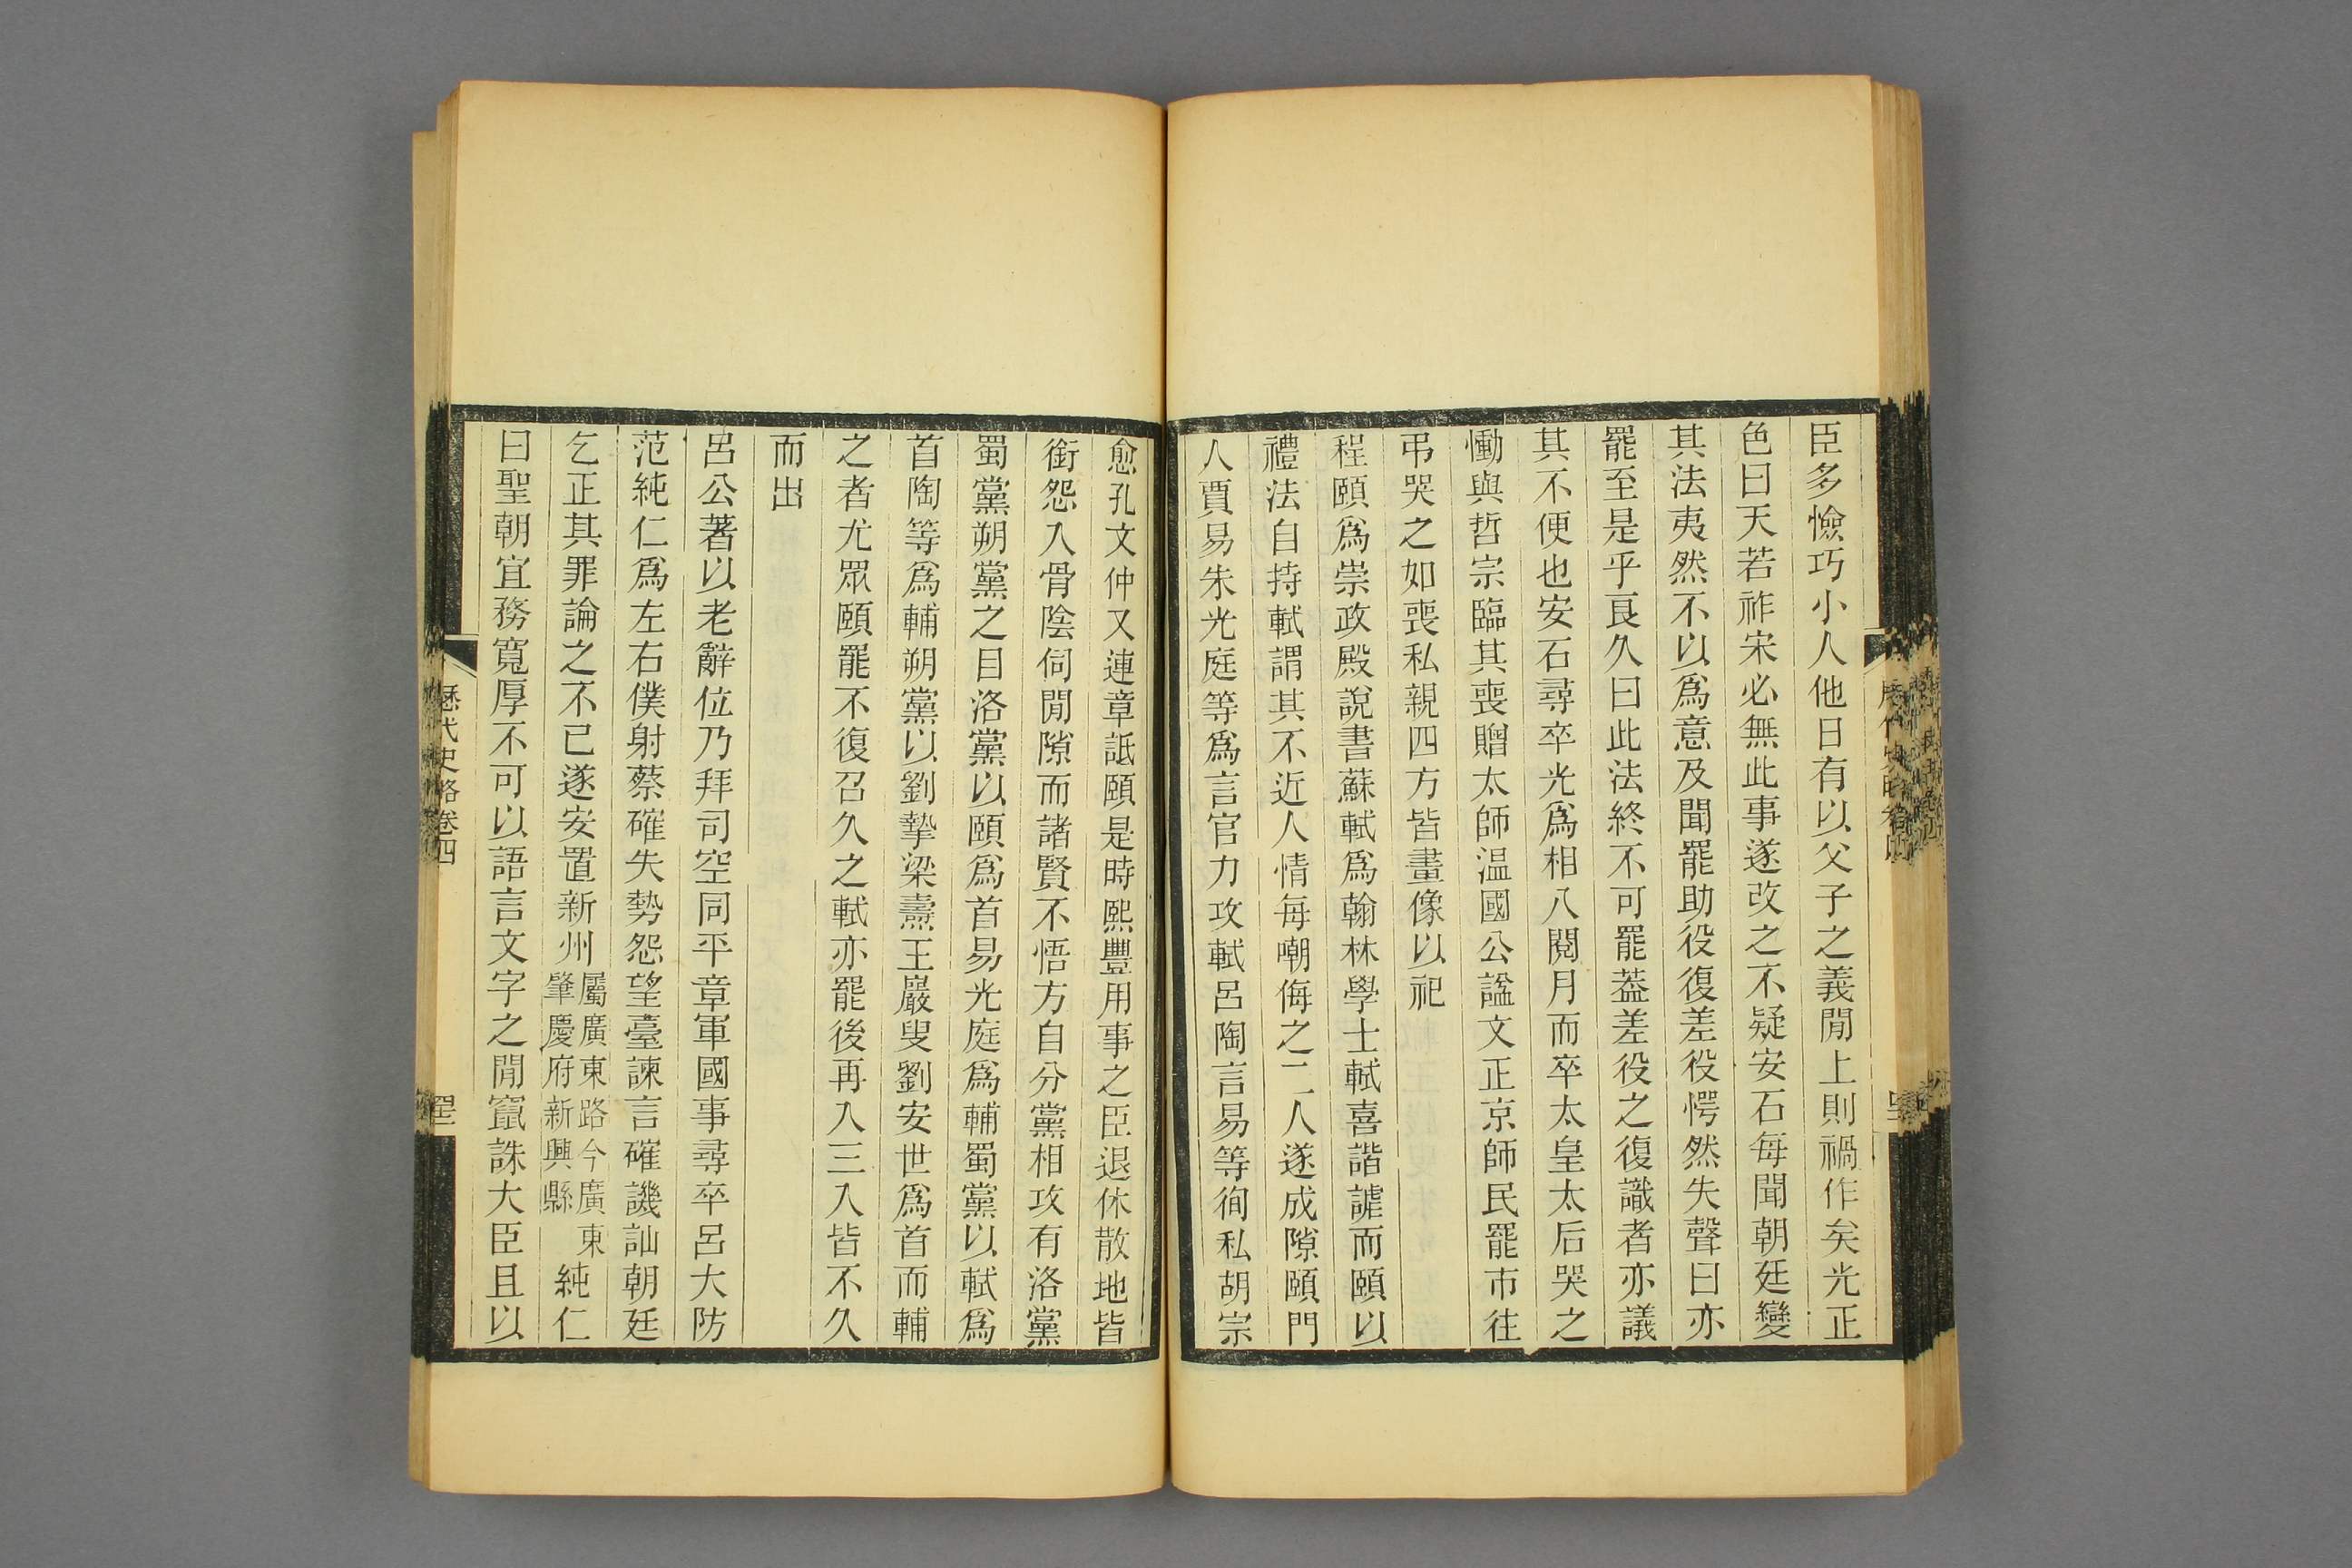 臣多憸巧小人他日有以父子之義閒上則禍作矣光正
色曰天若祚宋必無此事遂改之不疑安石每聞朝廷變
其法夷然不以爲意及聞罷助役復差役愕然失聲曰亦
罷至是乎良久曰此法終不可罷葢差役之復識者亦議
其不便也安石尋卒光爲相八閱月而卒太皇太后哭之
慟與哲宗臨其喪贈太師温國公諡文正京師民罷市往
弔哭之如喪私親四方皆畫像以祀
程頤爲崇政殿說書蘇軾爲翰林學士軾喜諧謔而頤以
禮法自持軾謂其不近人情每嘲侮之二人遂成隙頤門
人賈易朱光庭等爲言官力攻軾呂陶言易等徇私胡宗
愈孔文仲又連章詆頤是時熙豐用事之臣退休散地皆
銜怨入骨陰伺閒隙而諸賢不悟方自分黨相攻有洛黨
蜀黨朔黨之目洛黨以頤爲首易光庭爲輔蜀黨以軾爲
首陶等爲輔朔黨以劉摯梁燾王巖叟劉安世爲首而輔
之者尤眾頤罷不復召久之軾亦罷後再入三入皆不久
而出
呂公著以老辭位乃拜司空同平章軍國事尋卒呂大防
范純仁爲左右僕射蔡確失勢怨望臺諫言確譏訕朝廷
乞正其罪論之不已遂安置新州屬廣東路今廣東肇慶府新興縣純仁
曰聖朝宜務寬厚不可以語言文字之閒竄誅大臣且以
歷代史略卷四